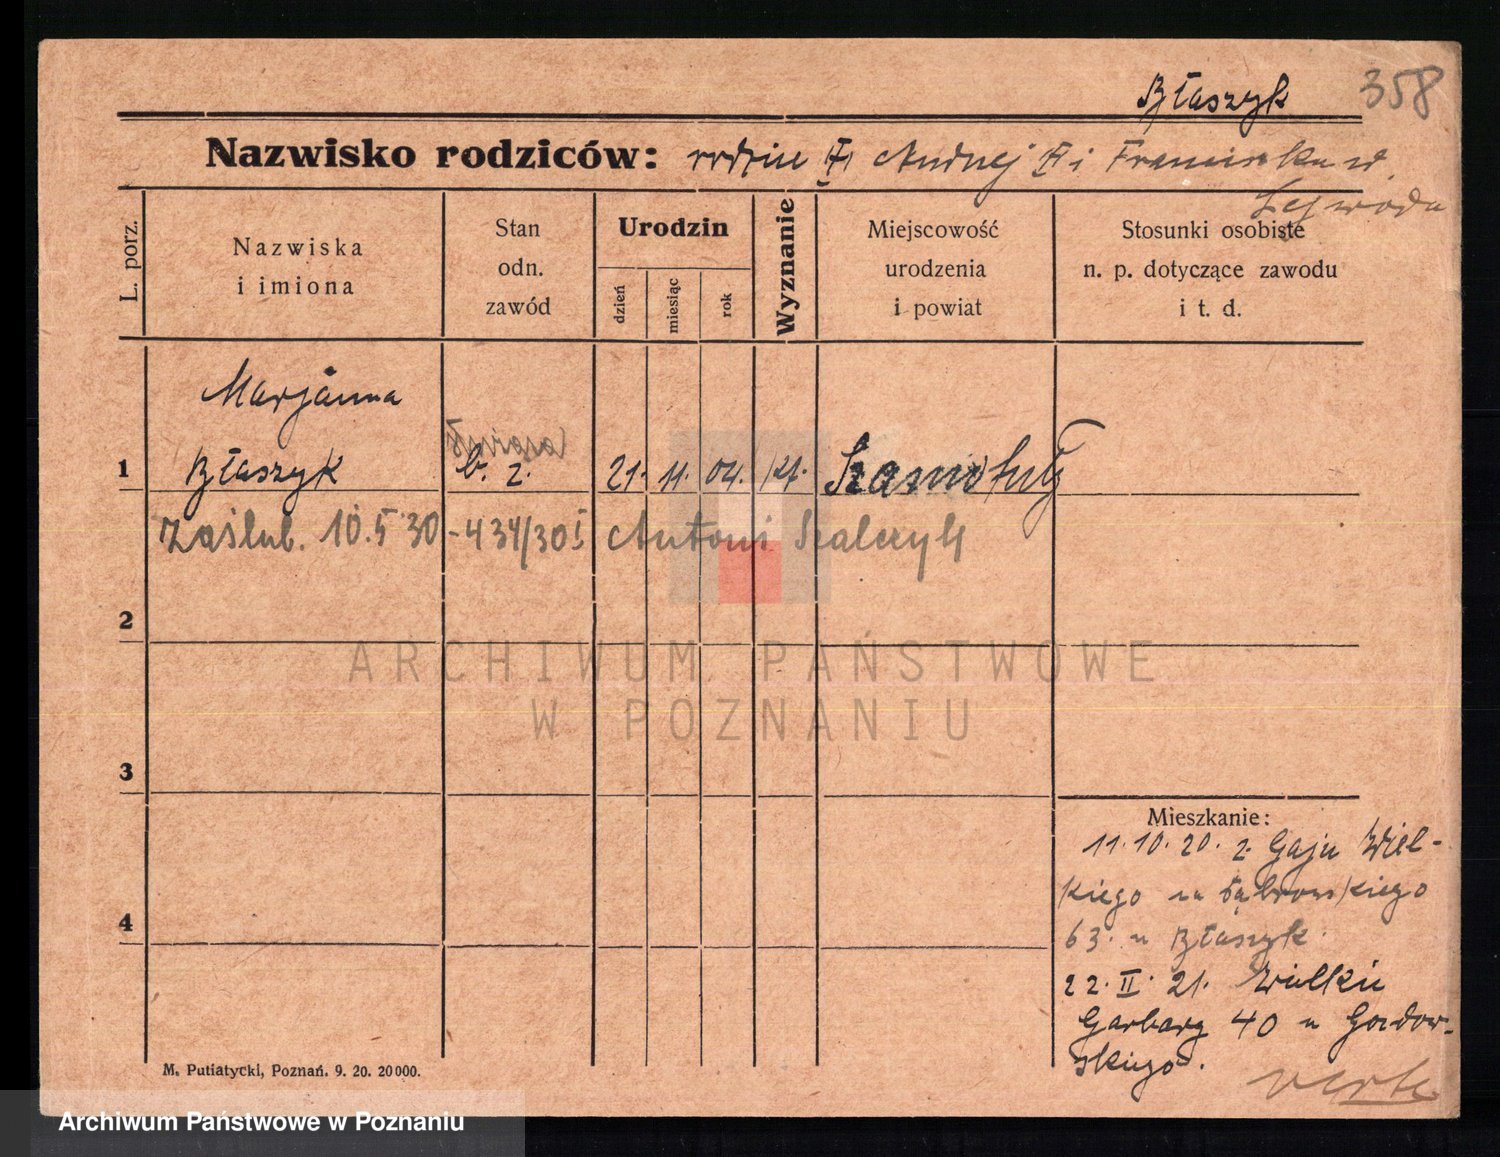 Błaszyk 358
Nazwisko rodziców: rodzice Andrzej i Franciszka zd.
Lejwoda
L. porz.
Nazwiska
i imiona
Stan
odn.
zawód
Urodzin
dzień
miesiąc
rok
Wyznanie
Miejscowość
urodzenia
i powiat
Stosunki osobiste
n. p. dotyczące zawodu
i t. d.
Marjanna
1 Błaszyk b. z. 21. 11. 04. kt. Szamotuły
Zaślub. 10.5 30 - 434/30 I Antoni Szalczyk
2
3
4
Mieszkanie:
11.10.20. z Gaju Wiel-
kiego na Dąbrowskiego
63. u Błaszyk.
22. II. 21. Wielkie
Garbary 40 u Gozdow-
skiego.
verte
M. Putiatycki, Poznań. 9. 20. 20000.
ARCHIWUM PAŃSTWOWE
W POZNANIU
Archiwum Państwowe w Poznaniu